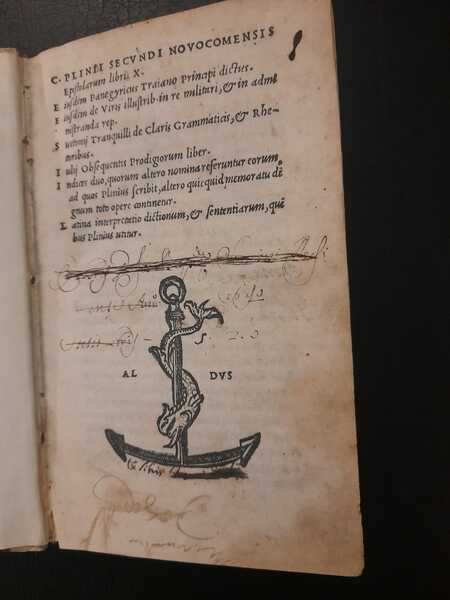 C. PLINII SECVNDI NOVOCOMENSIS
Epistolarum libri X.
E iusdem Panegyricus Traiano Principi dictus.
E iusdem de Viris illustrib. in re militari, & in admi
nistranda rep.
S uetonij Tranquilli de Claris Grammaticis, & Rhe-
toribus.
I ulij Obsequentis Prodigiorum liber.
I ndices duo, quorum altero nomina referuntur eorum,
ad quos Plinius scribit, altero quicquid memoratu dē
gnum toto opere continetur.
L atina interpretatio dictionum, & sententiarum, quē
bus Plinius utitur.
AL DVS